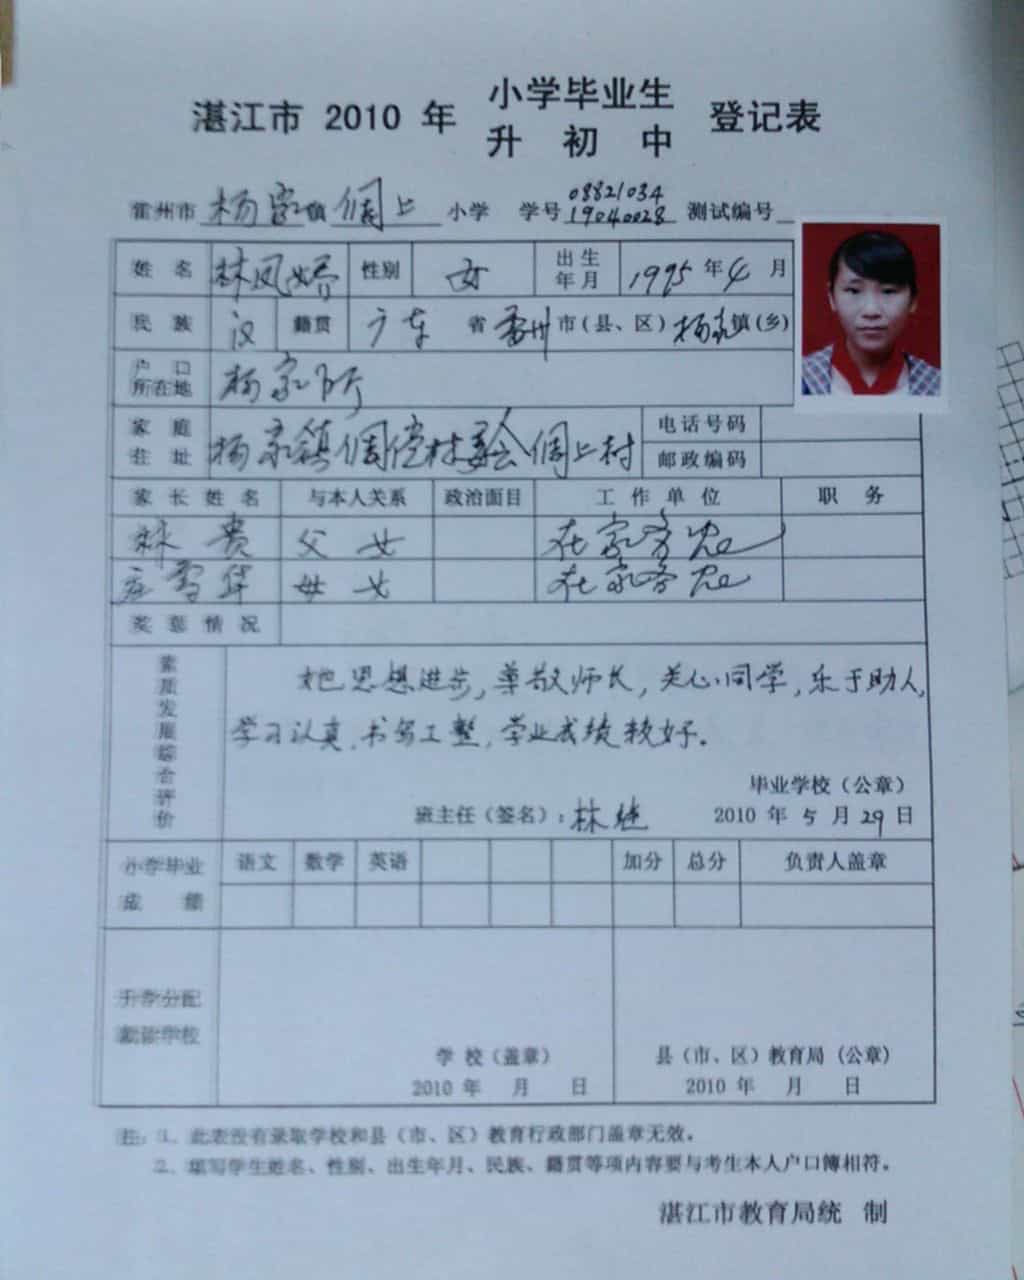 湛江市 2010 年 小学毕业生 登记表
升 初 中
雷州市 杨家 镇 倜上 小学 学号 08821034 测试编号
19040028
姓 名 林凤娇 性别 女 出生年月 1995 年 4 月
民 族 汉 籍贯 广东 省 雷州 市(县、区) 杨家 镇(乡)
户 口 所在地 杨家所
家 庭 住 址 杨家镇倜偿村委会倜上村 电话号码
邮政编码
家 长 姓 名 与本人关系 政治面目 工 作 单 位 职 务
林 贵 父 女 在家务农
庄雪华 母 女 在家务农
奖 惩 情 况
素质发展综合评价
她思想进步,尊敬师长,关心同学,乐于助人,
学习认真,书写工整,学业成绩较好。
毕业学校(公章)
班主任(签名): 林 2010 年 5 月 29 日
小学毕业 语文 数学 英语 加分 总分 负责人盖章
成 绩
升学分配
就读学校
学 校(盖章) 县(市、区)教育局(公章)
2010 年 月 日 2010 年 月 日
注:1、此表没有录取学校和县(市、区)教育行政部门盖章无效。
2、填写学生姓名、性别、出生年月、民族、籍贯等项内容要与考生本人户口簿相符。
湛江市教育局统 制